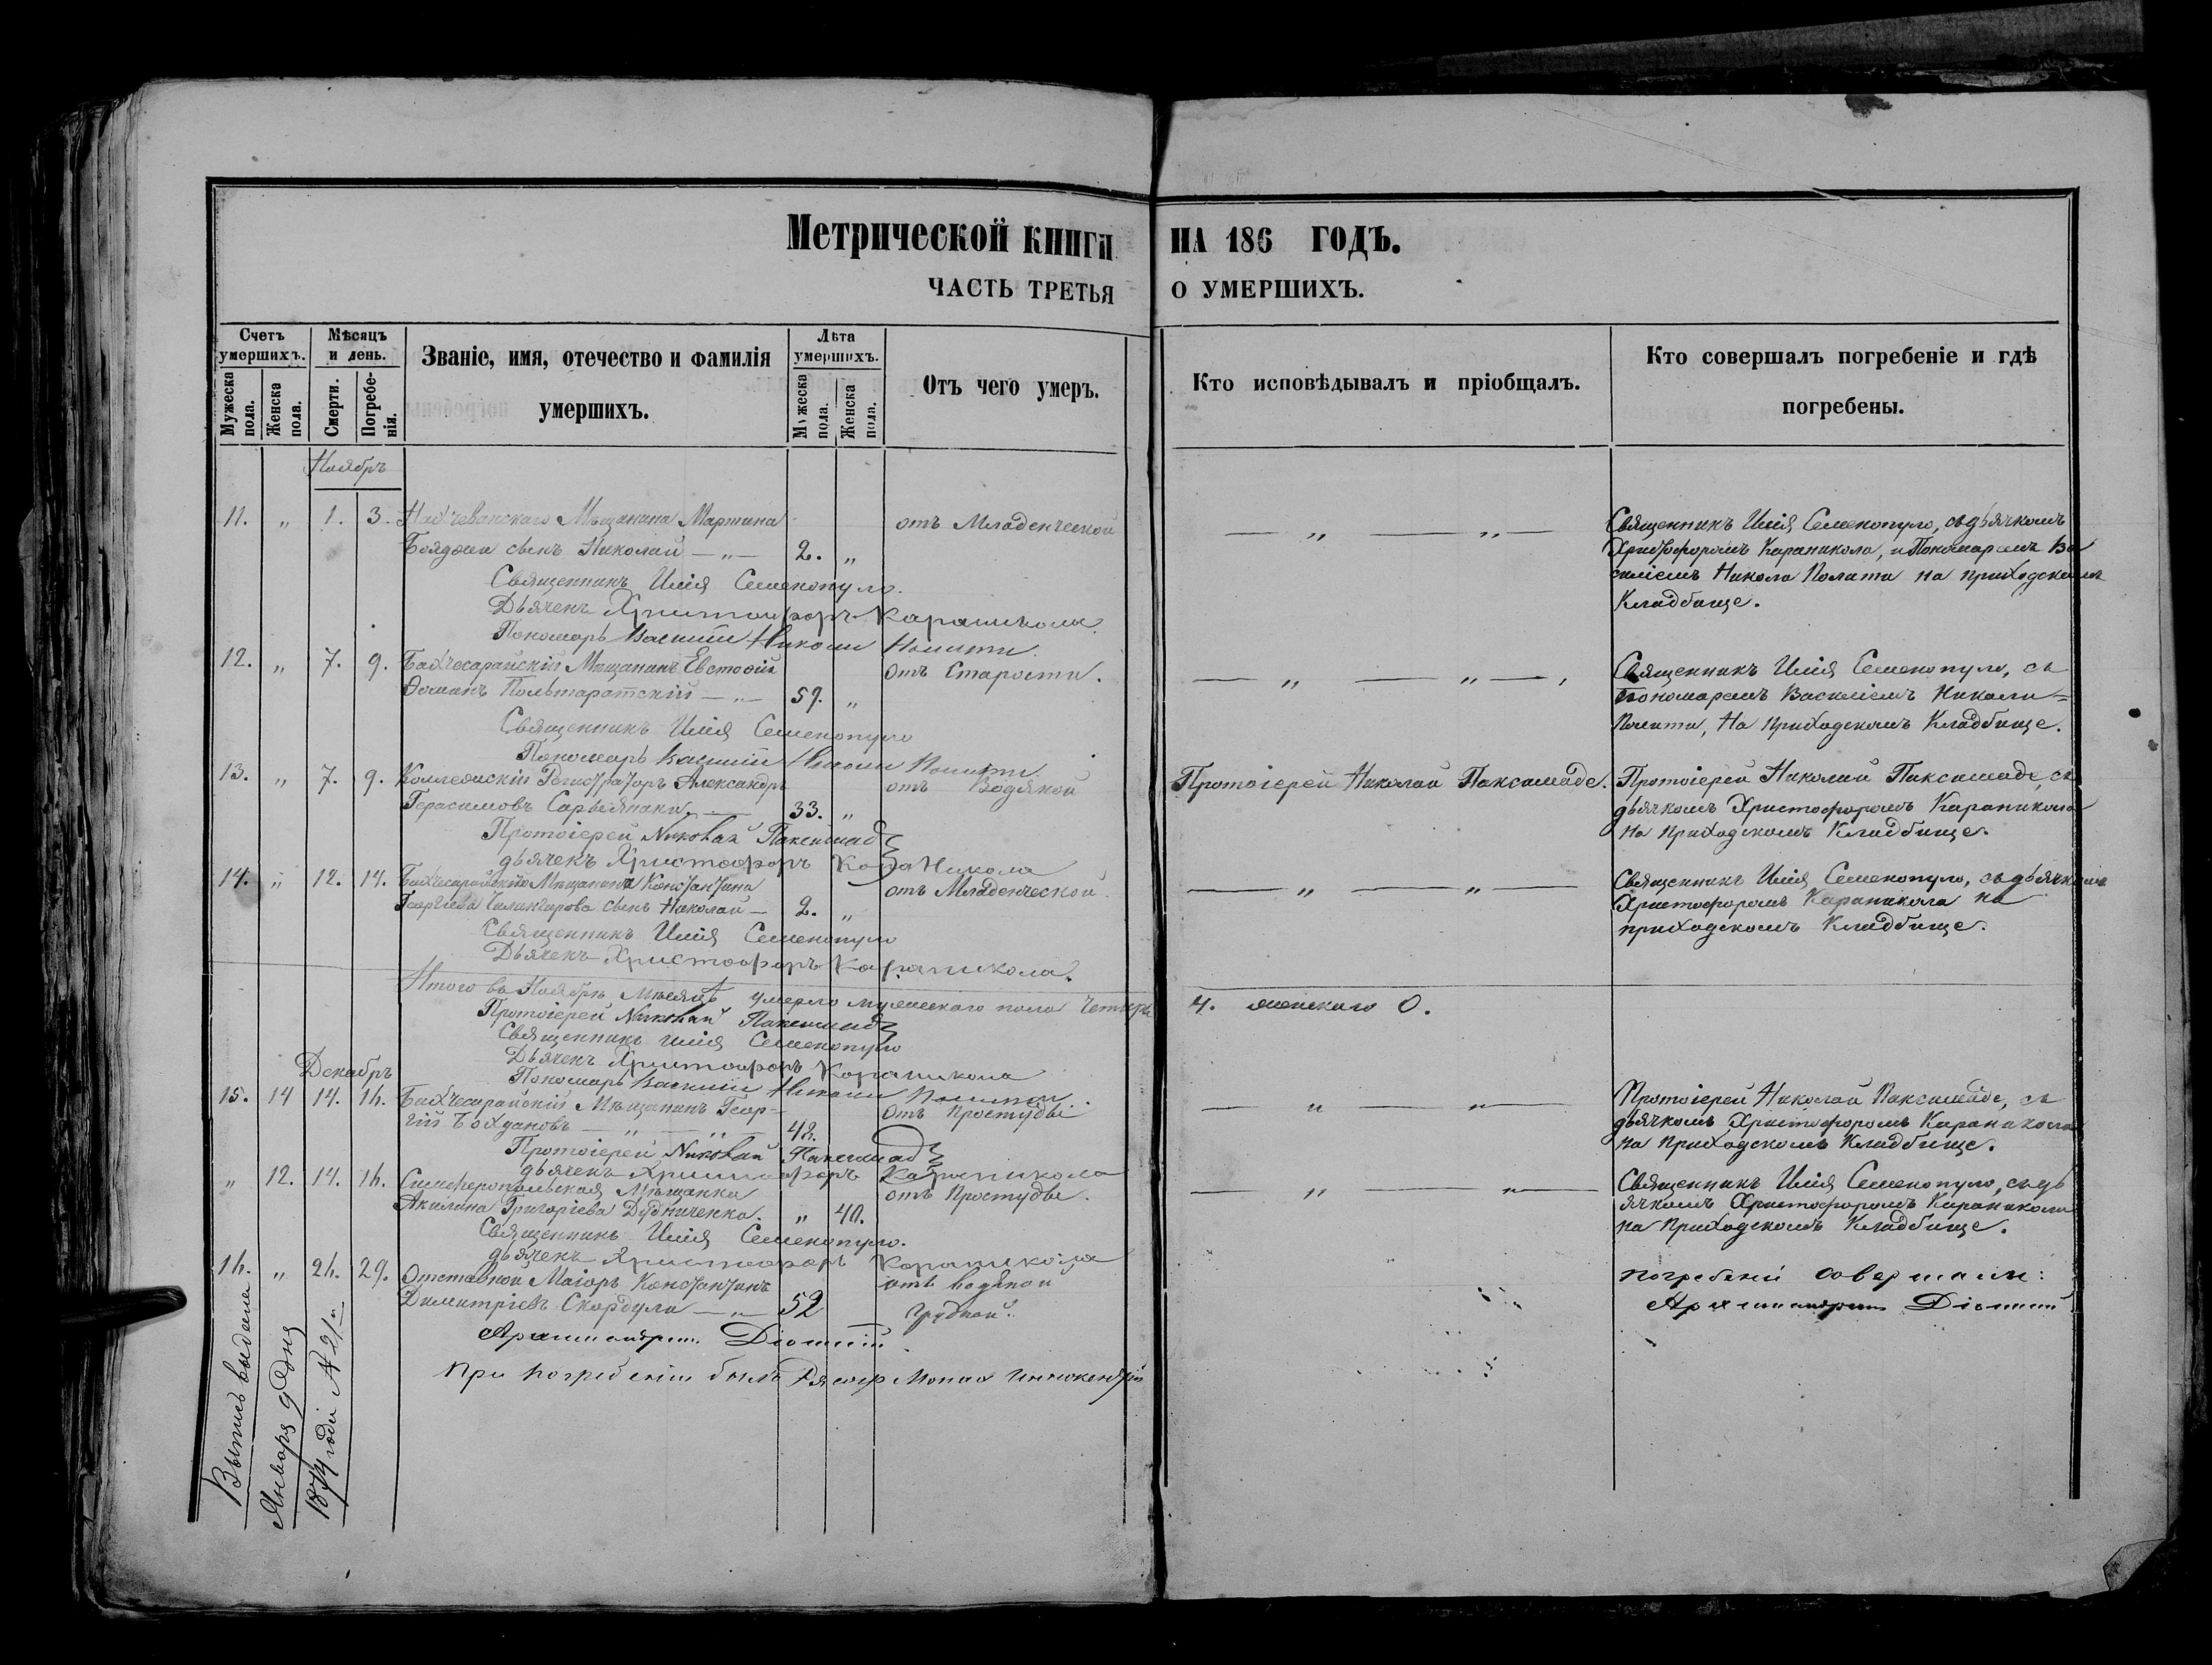 Метрической книги на 186 годъ.
часть третья о умершихъ.
Счетъ умершихъ.
Мужеска пола.
Женска пола.
Мѣсяцъ и день.
Смерти.
Погребенія.
Званіе, имя, отечество и фамилія умершихъ.
Лѣта умершихъ.
Мужеска пола.
Женска пола.
Отъ чего умеръ.
Кто исповѣдывалъ и пріобщалъ.
Кто совершалъ погребеніе и гдѣ погребены.
Ноябрь
11. „ 1. 3. Нахчеванскаго Мѣщанина Мартина отъ Младенческой
сынъ Николай — „ — 2. „
Священникъ Илія Семенопуло, съ дьячкомъ
Христофоромъ Караникола, и Пономаремъ Ва
силіемъ Никола Полити на приходскомъ
Кладбище.
Священникъ Илія Семенопуло.
Дьячекъ Христофоръ Караникола.
Пономарь Василій Николи Полити.
12. „ 7. 9. Бахчесарайскій Мѣщанинъ Евстафій отъ Старости.
— „ — 59. „
Священникъ Илія Семенопуло, съ
Пономаремъ Василіемъ Николи
Полити, На приходскомъ Кладбище.
Священникъ Илія Семенопуло
Пономарь Василій Николи Полити
13. „ 7. 9. Коллежскій Регистраторъ Александръ отъ Водяной
Герасимовъ 33. „
Протоіерей Николай Паксимаде.
Протоіерей Николай Паксимаде, съ
дьячкомъ Христофоромъ Караникола
на приходскомъ Кладбище.
Протоіерей Николай Паксимад
дьячекъ Христофоръ Караникола
14. „ 12. 14. Бахчесарайскаго Мѣщанина Константина отъ Младенческой
Георгіева сынъ Николай — 2. „
Священникъ Илія Семенопуло, съ дьячкомъ
Христофоромъ Караникола на
приходскомъ Кладбище.
Священникъ Илія Семенопуло
Дьячекъ Христофоръ Караникола.
Итого въ Ноябрѣ Мѣсяцѣ умерло мужескаго пола четыре 4. женскаго 0.
Протоіерей Николай Паксимад
Священникъ Илія Семенопуло
Дьячекъ Христофоръ Караникола
Пономарь Василій Николи Полити
Декабрь
15. 14 14. 16. Бахчесарайскій Мѣщанинъ Геор- отъ Простуды.
гій Богдановъ — „ — „ — 48.
Протоіерей Николай Паксимаде, съ
дьячкомъ Христофоромъ Караникола
на приходскомъ Кладбище.
Протоіерей Николай Паксимад
дьячекъ Христофоръ Караникола
„ 12. 14. 16. Симферопольская Мѣщанка отъ Простуды.
Акилина Григоріева Дудниченко. „ 40.
Священникъ Илія Семенопуло, съ дь
ячкомъ Христофоромъ Караникола
на приходскомъ Кладбище.
Священникъ Илія Семенопуло.
дьячекъ Христофоръ Караникола
16. „ 26. 29. Отставной Маіоръ Константинъ отъ водяной
Димитріевъ Скордули — „ — 52 грудной.
погребеніе совершалъ:
Архимандритъ Діонисій
Архимандритъ Діонисій
При погребеніи былъ Монах Иннокентій
Выпись выдана
Января 9 дня
1874 года № 21